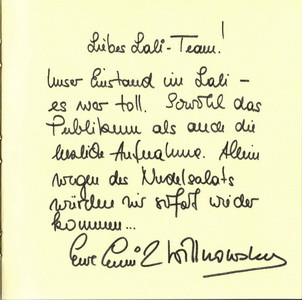 Liebes Lali-Team!
Unser Einstand im Lali –
es war toll. Sowohl das
Publikum als auch die
herzliche Aufnahme. Allein
wegen des Nudelsalats
würden wir sofort wieder
kommen...